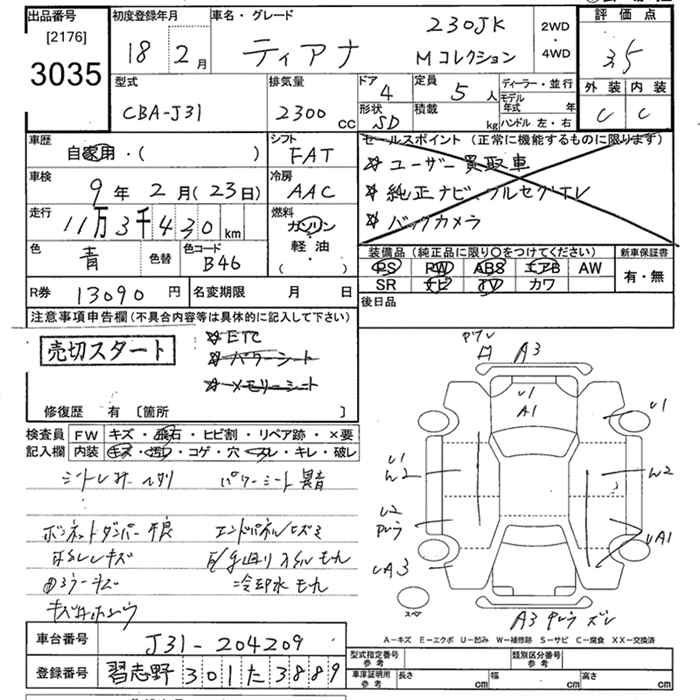 出品番号 初度登録年月 車名・グレード 評価点
[2176]
3035
18 2月
ティアナ
230JK
Mコレクション
2WD
・
4WD
3.5
型式 排気量 ドア 定員 ディーラー・並行 外装 内装
CBA-J31 2300cc 4 5人
モデル年式 年
形状 積載 ハンドル 左・右
SD kg
C C
車歴 シフト
自家用・( ) FAT
セールスポイント (正常に機能するものに限ります)
☆ユーザー買取車
☆純正ナビ、フルセグTV
☆バックカメラ
車検 冷房
9年2月(23日) AAC
走行 燃料
11万3千430km
ガソリン
軽油
・( )
色 色替 色コード
青 B46
装備品 (純正品に限り○をつけてください) 新車保証書
PS PW ABS エアB AW
SR ナビ TV カワ
有・無
R券 13090円 名変期限 月 日
後日品
注意事項申告欄 (不具合内容等は具体的に記入して下さい)
売切スタート
☆ETC
☆パワーシート
☆メモリーシート
修復歴 有 [箇所 ]
検査員 FW キズ・飛石・ヒビ割・リペア跡・×要
記入欄 内装 キズ・汚レ・コゲ・穴・スレ・キレ・破レ
パワーシート異音
ボンネットダンパー不良
冷却水モレ
A3
U1
A1
U1
U1
W2
W2
U2
UA1
UA3
スペア
A3
A-キズ E-エクボ U-凹み W-補修跡 S-サビ C-腐食 XX-交換済
車台番号 J31-204209
登録番号 習志野 301 た 3889
型式指定番号 参考 類別区分番号 参考
車庫証明用 参考 長さ cm 幅 cm 高さ cm